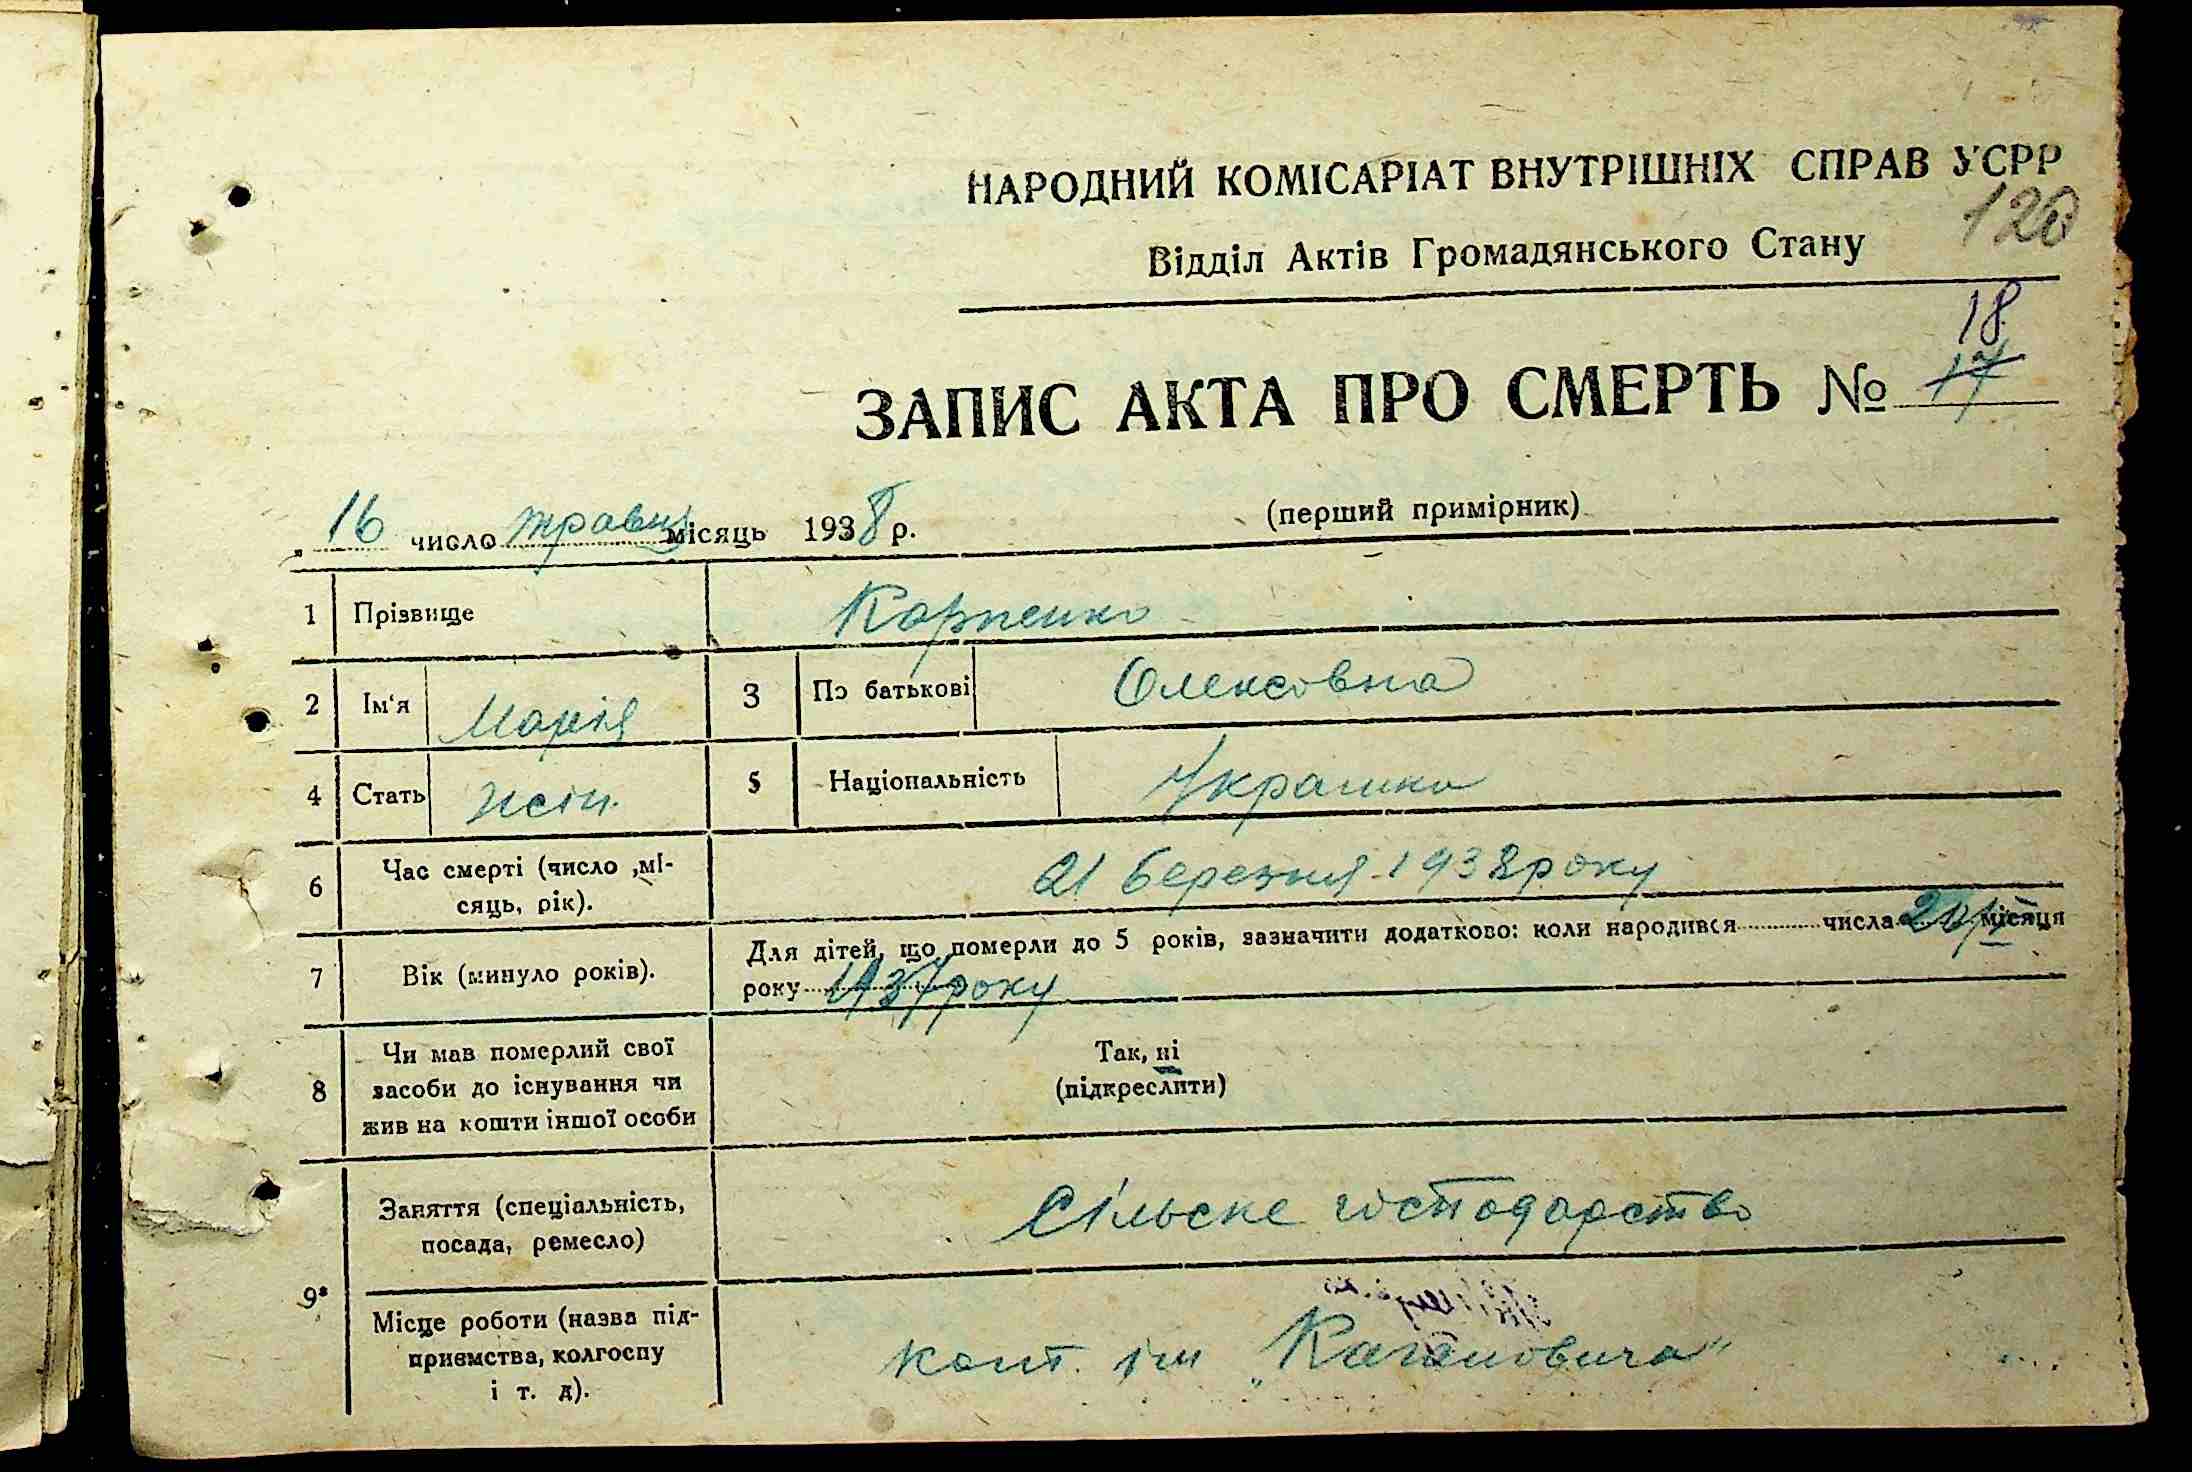 НАРОДНИЙ КОМІСАРІАТ ВНУТРІШНІХ СПРАВ УСРР
120
Відділ Актів Громадянського Стану
18
ЗАПИС АКТА ПРО СМЕРТЬ № 17
16 число травня місяць 1938 р. (перший примірник)
1 Прізвище Карпенко
2 Ім'я Марія 3 По батькові Олексовна
4 Стать жін. 5 Національність Украинка
6 Час смерті (число ,мі-
сяць, рік). 21 березня 1938 року
7 Вік (минуло років). Для дітей, що померли до 5 років, зазначити додатково: коли народився числа місяця
року 1937 року
8 Чи мав померлий свої
засоби до існування чи
жив на кошти іншої особи
Так, ні
(підкреслити)
9* Заняття (спеціальність,
посада, ремесло) Сільське господарство
Місце роботи (назва під-
приємства, колгоспу
і т. д).
ім „Кагановича"